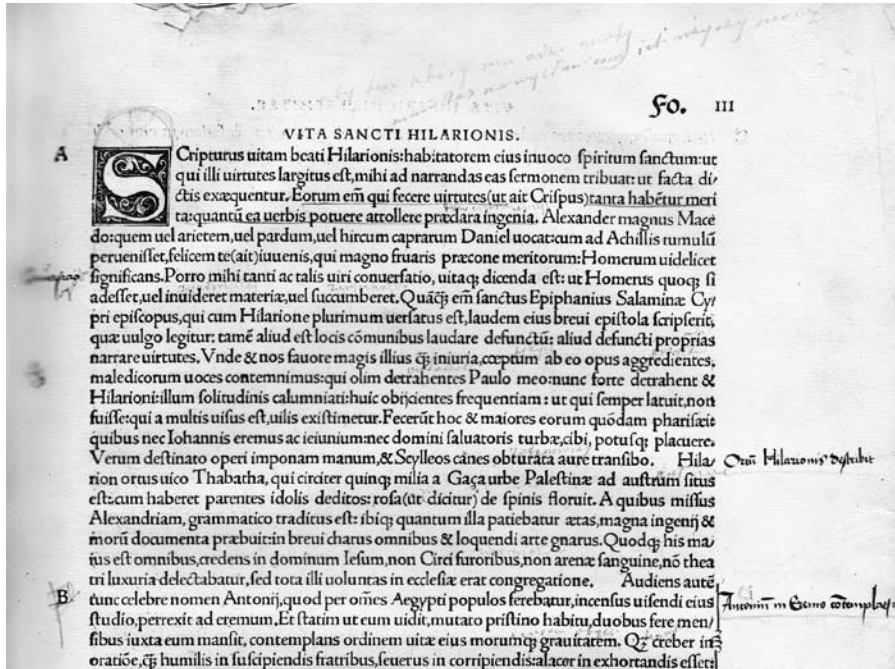 Fo. III
VITA SANCTI HILARIONIS.
A
SCripturus uitam beati Hilarionis:habitatorem eius inuoco spiritum sanctum:ut
qui illi uirtutes largitus est,mihi ad narrandas eas sermonem tribuat:ut facta di/
ctis exæquentur. Eorum em̄ qui fecere uirtutes(ut ait Crispus)tanta habētur meri
ta:quantū ea uerbis potuere attollere præclara ingenia. Alexander magnus Mace
do:quem uel arietem,uel pardum,uel hircum caprarum Daniel uocat:cum ad Achillis tumulū
peruenisset,felicem te(ait)iuuenis,qui magno fruaris præcone meritorum:Homerum uidelicet
significans.Porro mihi tanti ac talis uiri conuersatio, uitaq; dicenda est: ut Homerus quoq; si
adesset,uel inuideret materiæ,uel succumberet.Quāq̄; em̄ sanctus Epiphanius Salaminæ Cy/
pri episcopus,qui cum Hilarione plurimum uersatus est,laudem eius breui epistola scripserit,
quæ uulgo legitur: tamē aliud est locis cōmunibus laudare defunctū: aliud defuncti proprias
narrare uirtutes. Vnde & nos fauore magis illius q̄; iniuria,cœptum ab eo opus aggredientes,
maledicorum uoces contemnimus:qui olim detrahentes Paulo meo:nunc forte detrahent &
Hilarioni:illum solitudinis calumniati:huic obijcientes frequentiam : ut qui semper latuit,non
fuisse:qui a multis uisus est,uilis existimetur.Fecerūt hoc & maiores eorum quōdam pharisæi:
quibus nec Iohannis eremus ac ieiunium:nec domini saluatoris turbæ,cibi, potusq; placuere.
Verum destinato operi imponam manum,& Scylleos canes obturata aure transibo. Hila/
Ortū Hilarionis describit
rion ortus uico Thabatha, qui circiter quinq; milia a Gaça urbe Palestinæ ad austrum situs
est:cum haberet parentes idolis deditos:rosa(ut dicitur) de spinis floruit. A quibus missus
Alexandriam, grammatico traditus est: ibiq; quantum illa patiebatur ætas,magna ingenij &
morū documenta præbuit:in breui charus omnibus & loquendi arte gnarus. Quodq; his ma/
ius est omnibus,credens in dominum Iesum,non Circi furoribus,non arenæ sanguine,nō thea
tri luxuria delectabatur,sed tota illi uoluntas in ecclesiæ erat congregatione. Audiens autē
B
tunc celebre nomen Antonij,quod per om̄es Aegypti populos ferebatur,incensus uisendi eius
studio,perrexit ad eremum.Et statim ut eum uidit,mutato pristino habitu,duobus fere men/
sibus iuxta eum mansit, contemplans ordinem uitæ eius morumq; grauitatem. Q; creber in
oratiōe,q̄; humilis in suscipiendis fratribus,seuerus in corripiendis:alacer in exhortandis esset: